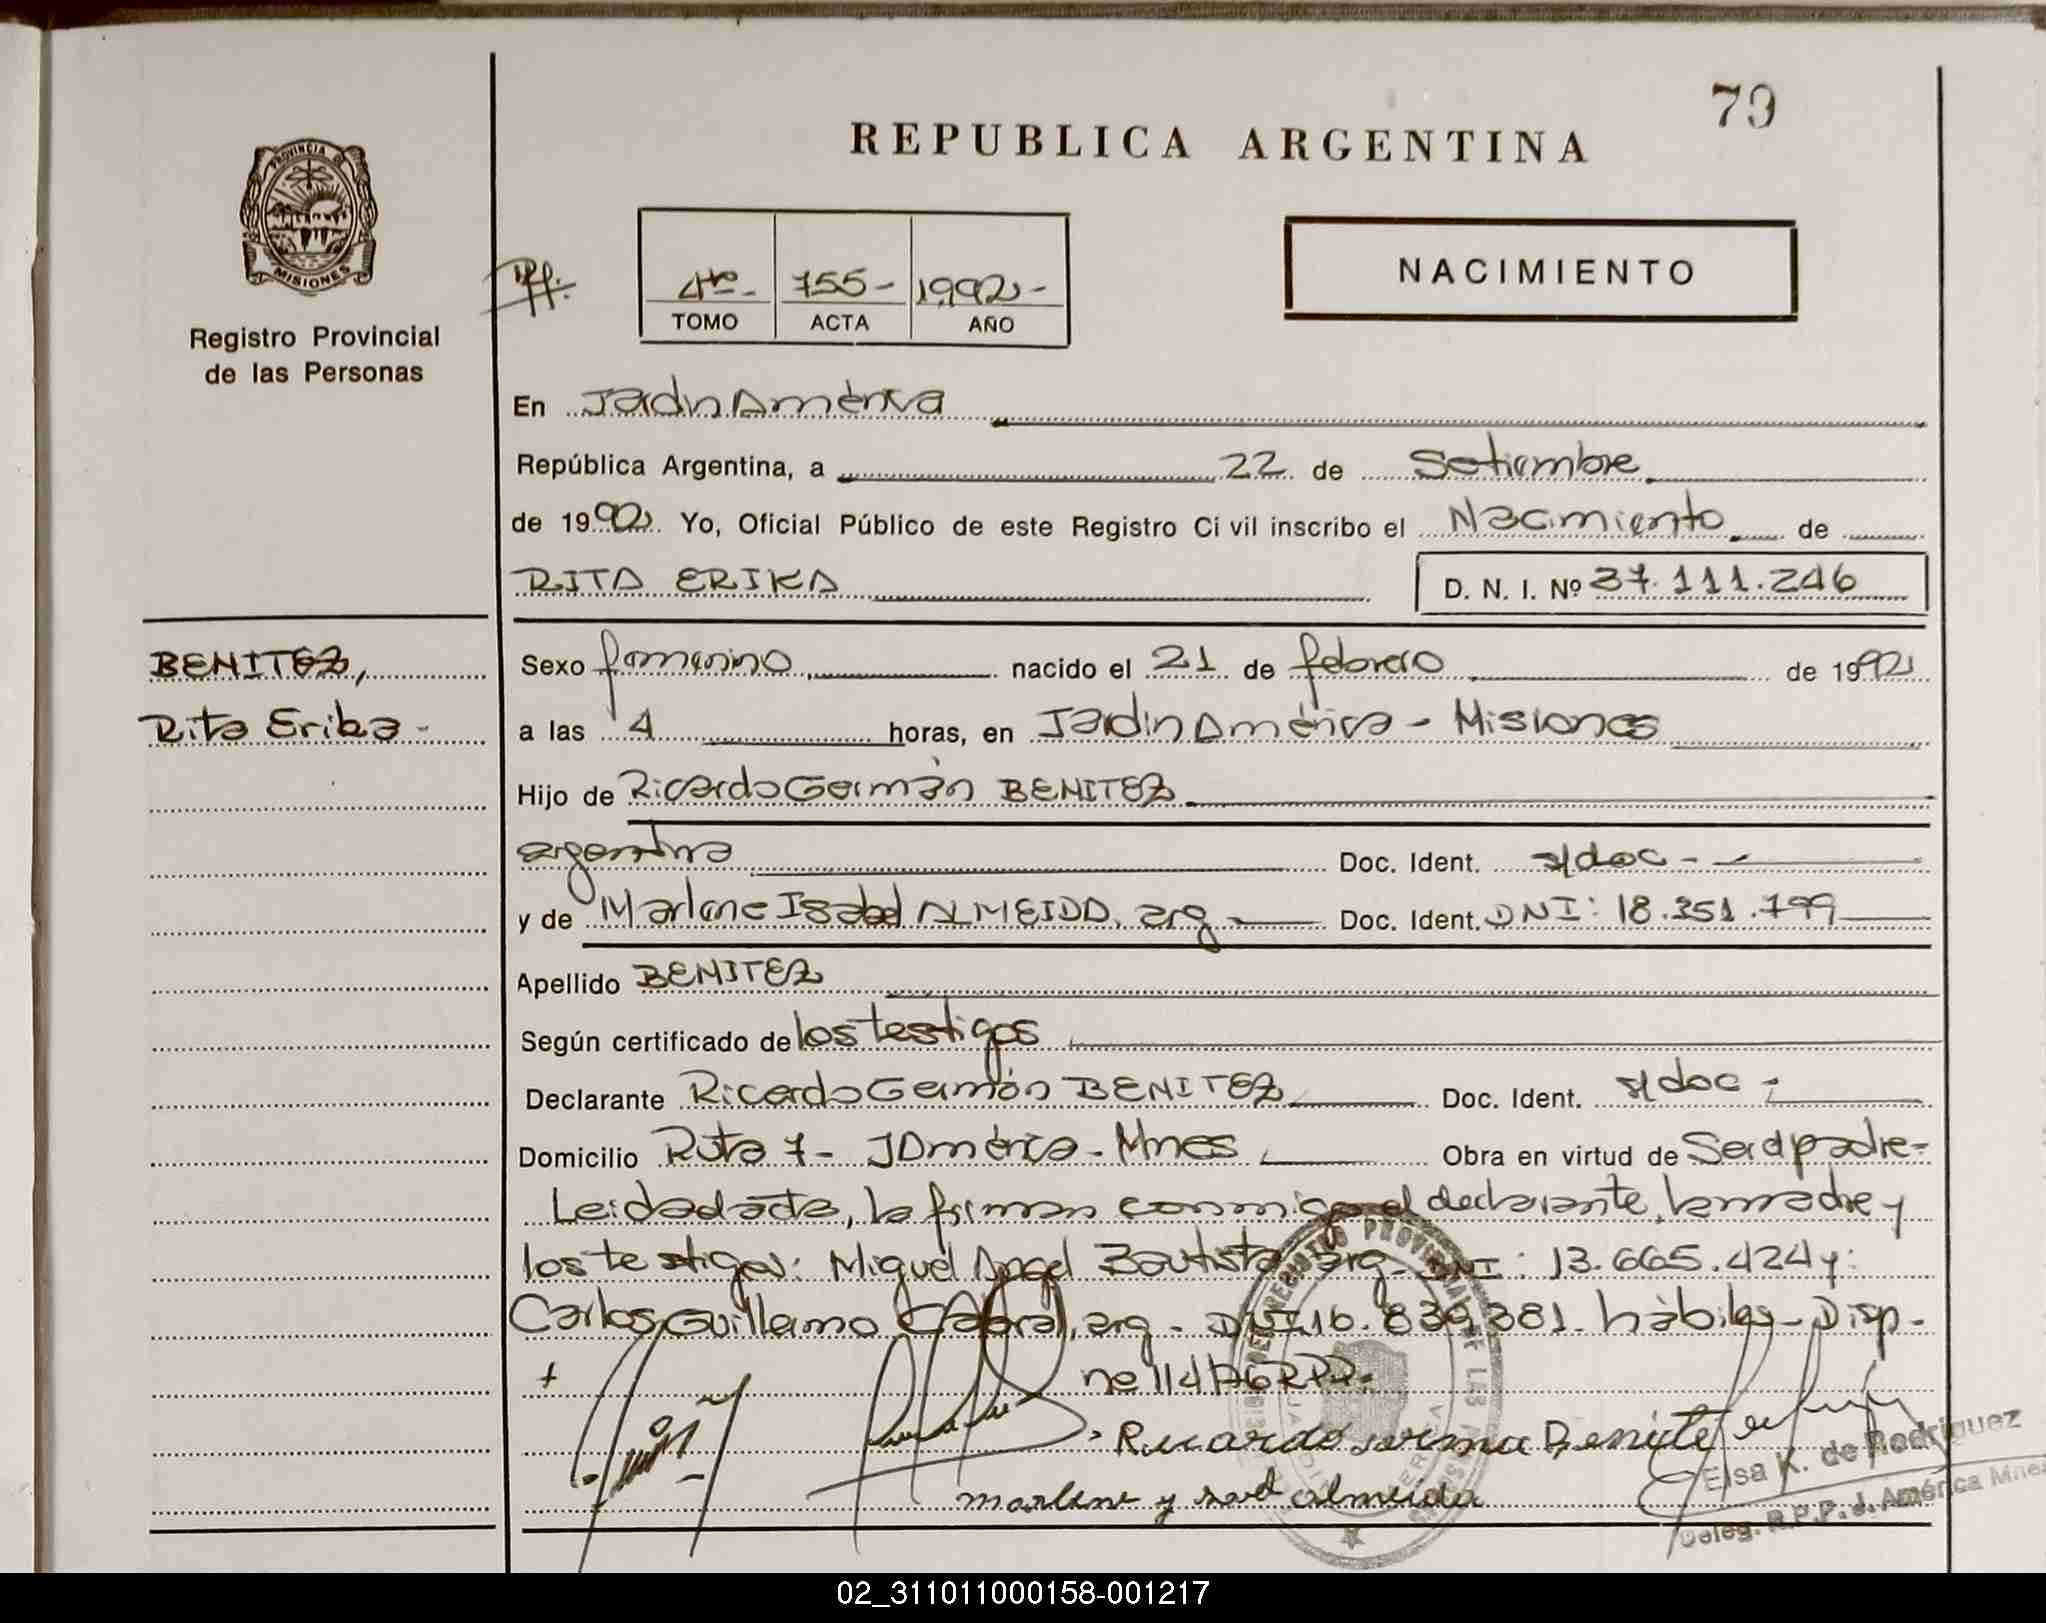 79
REPUBLICA ARGENTINA
PROVINCIA DE
MISIONES
Registro Provincial
de las Personas
4to - 755 - 1992 -
TOMO ACTA AÑO
NACIMIENTO
En Jardin América
República Argentina, a 22 de Setiembre
de 1992 Yo, Oficial Público de este Registro Civil inscribo el Nacimiento de
RITA ERIKA D. N. I. Nº 37.111.246
BENITEZ,
Rita Erika -
Sexo femenino nacido el 21 de febrero de 1992
a las 4 horas, en Jardin América - Misiones
Hijo de Ricardo Germán BENITEZ
argentino Doc. Ident. s/doc -
y de Marlene Isabel ALMEIDA, arg Doc. Ident. DNI: 18.351.799
Apellido BENITEZ
Según certificado de los testigos
Declarante Ricardo Germán BENITEZ Doc. Ident. s/doc -
Domicilio Ruta 7 - J América - Mnes Obra en virtud de Ser el padre -
Leida el acta, la firman conmigo el declarante, la madre y
los testigos: Miguel Angel Bautista arg - DNI: 13.665.424 y:
Carlos Guillermo Cabral, arg - DNI 16.839.381. hábiles - Disp -
nº 114/76 RPP.
Ricardo German Benitez
marlene ysavel almeida
Elsa K. de Rodriguez
Deleg. R.P.P. J. América Mnes
02_311011000158-001217